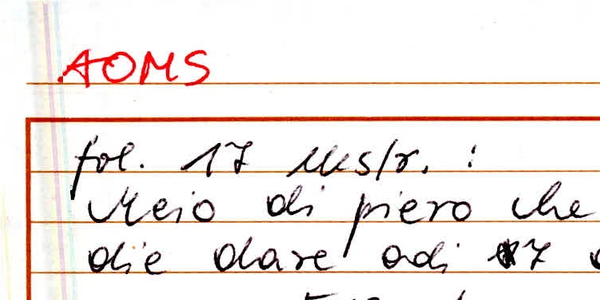 AOMS
fol. 17 lks/r. :
Meio di piero che
die dare adi 17